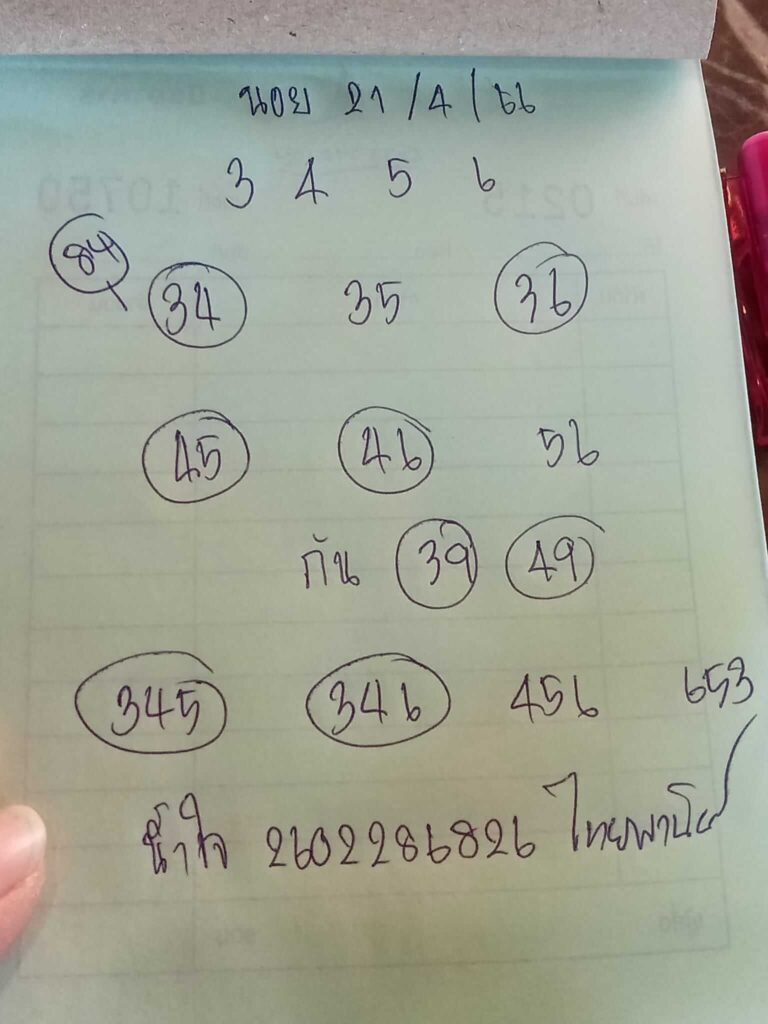 นอย 21/4/66
3 4 5 6
84
34 35 36
45 46 56
กัน 39 49
345 346 456 653
น้ำใจ 2602286826 ไทยพานิช